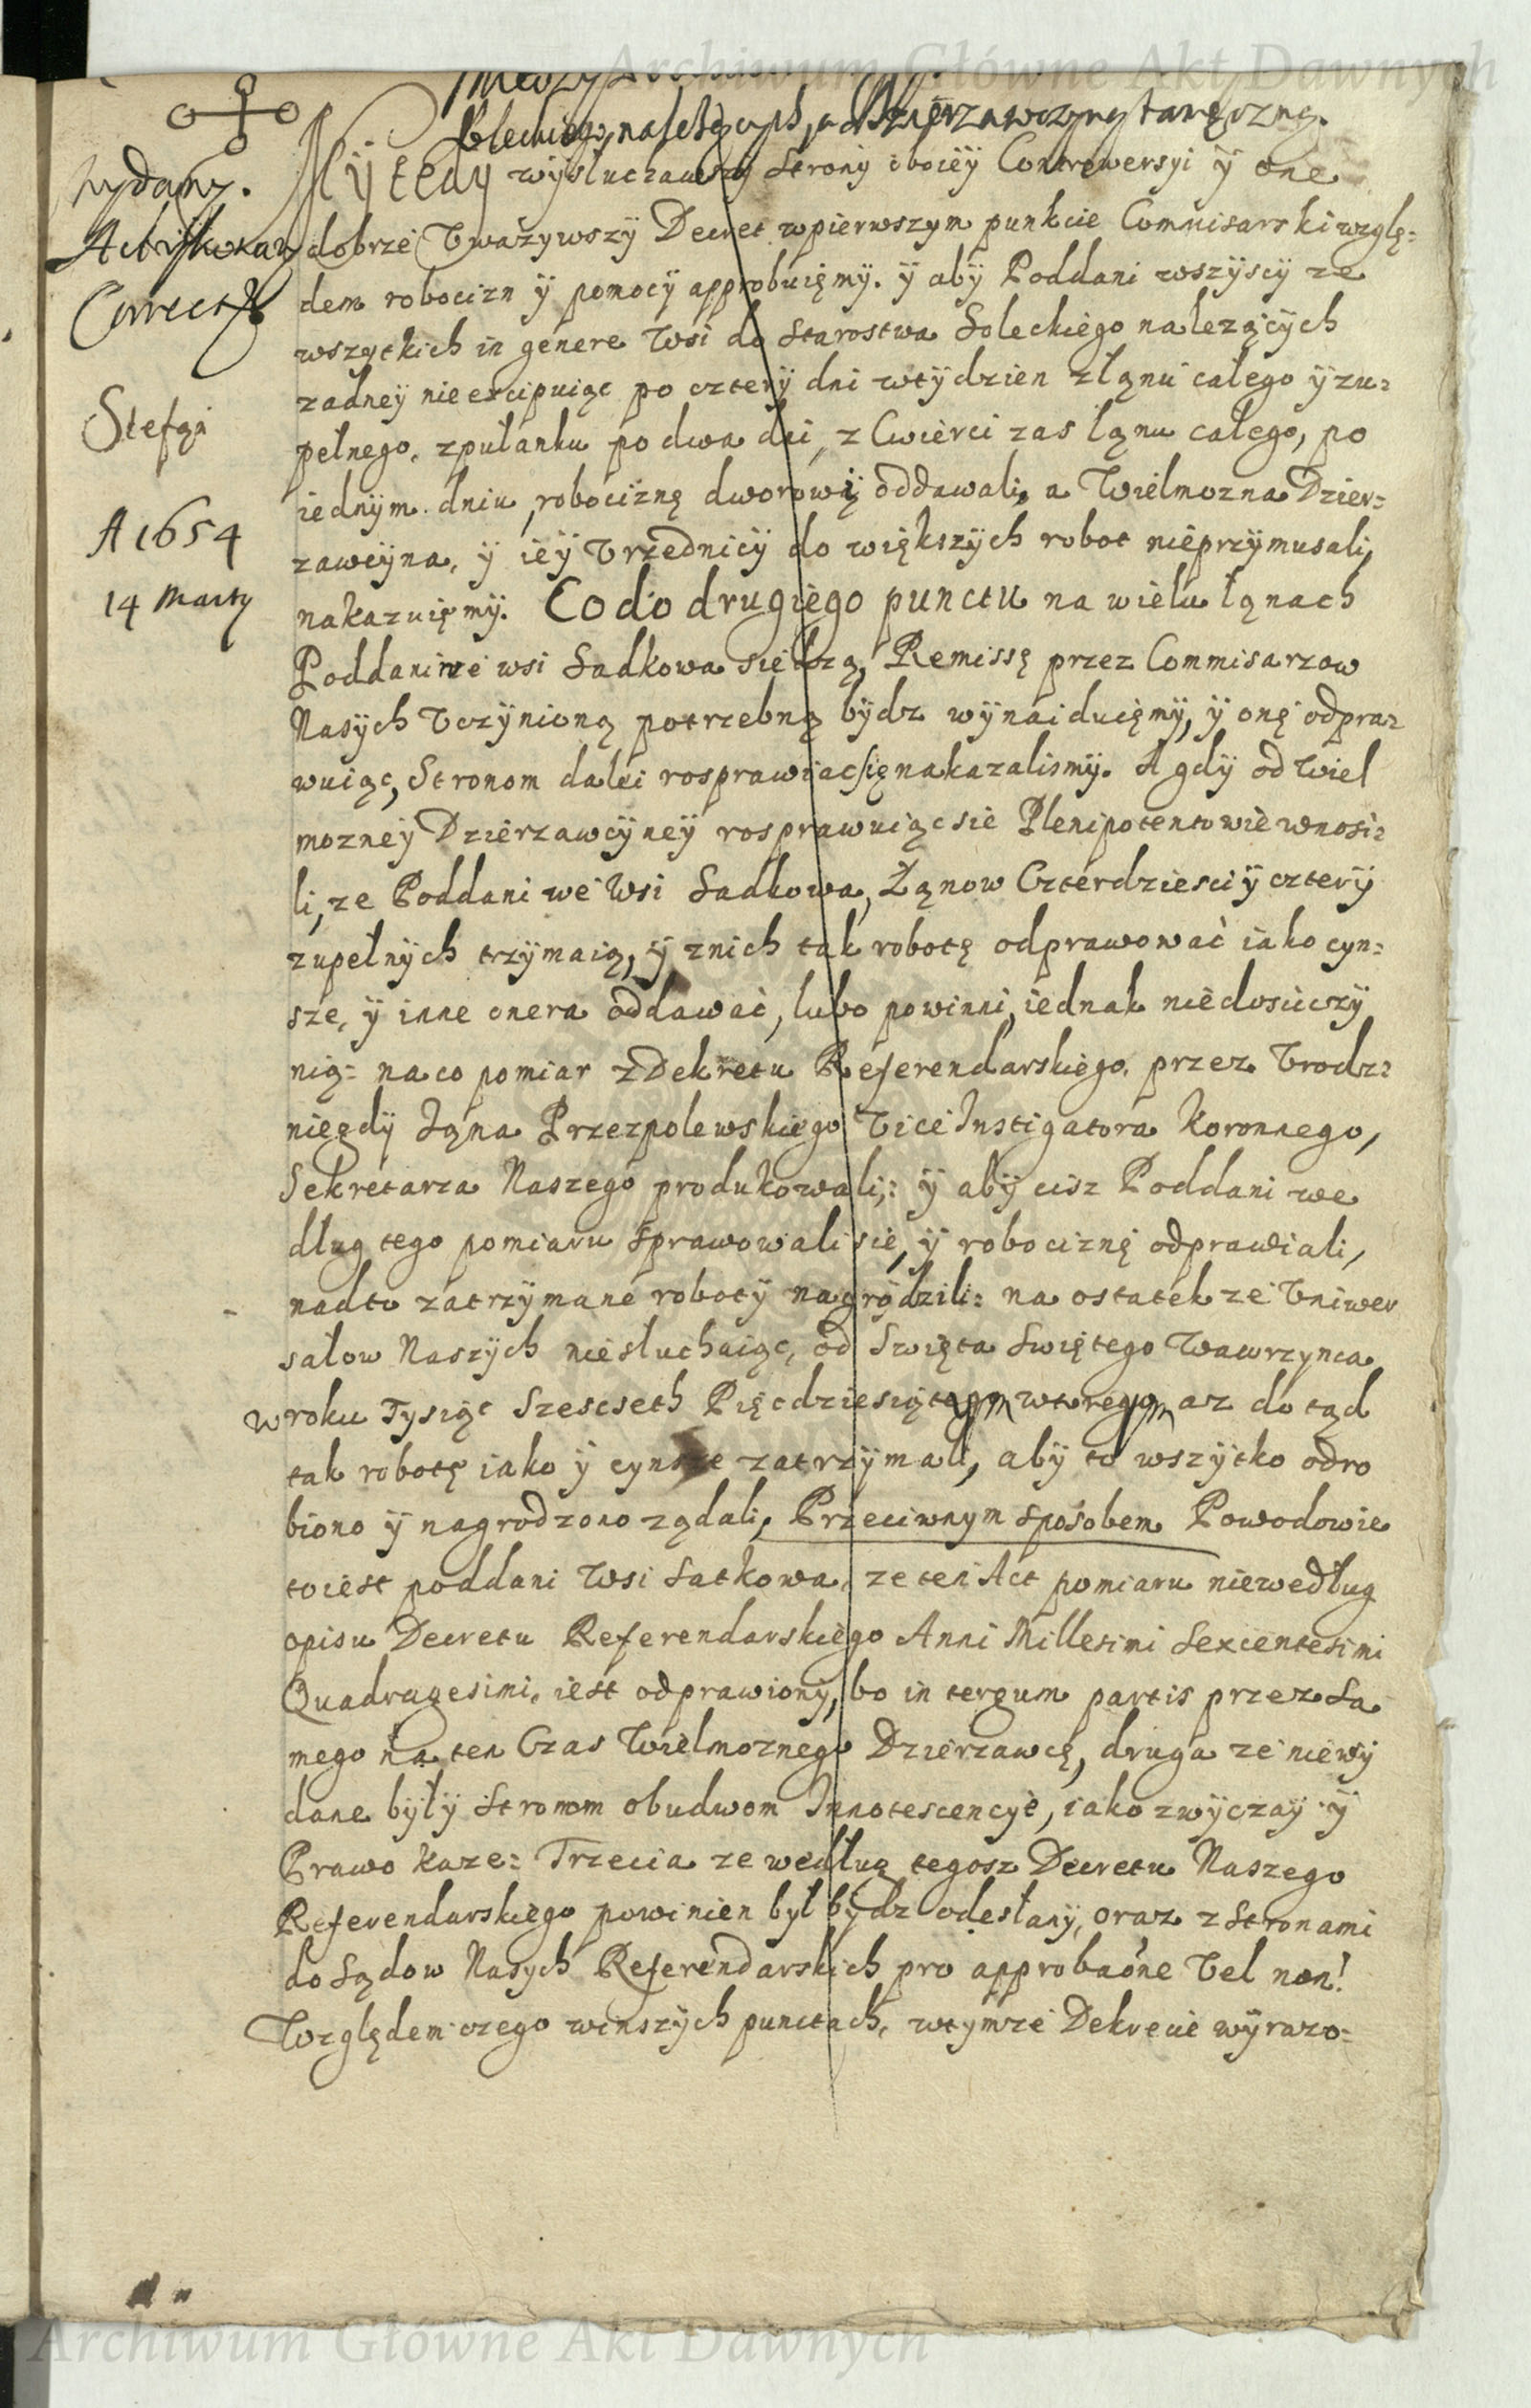 Archiwum Główne Akt Dawnych
Między
należących, a Dzierzawczyną tameczną.
wydany.
Correct
Stefan
A 1654
14 Marty
My tedy wysłuchawszy Strony oboiey Controwersyi y one
dobrze Vważywszy Decret wpierwszym punkcie Commisarski wzglę=
dem robocizn y pomocy approbuięmy. y aby Poddani wszyscy ze
wszytkich in genere Wsi do Starostwa Soleckiego nalezących
zadney nie excipuiąc po cztery dni wtydzien z łąnu całego y zu=
pełnego, zpułanku po dwa dni, z Cwierci zas łąnu całego, po
iednym dniu robociznę dworowi oddawali, a Wielmozna Dzier=
zawcyna, y iey Vrzednicy do większych robot nieprzymusali,
nakazuięmy. Co do drugiego punctu na wielu łąnach
Poddani we wsi Sadkowa siedzą, Remissę przez Commisarzow
Nasych Vczynioną potrzebną bydz wynaiduięmy, y onę odpra=
wuiąc, Stronom daley rosprawiac się nakazalismy. A gdy od Wiel
mozney Dzierzawcyney rosprawuiąc sie Plenipotentowie wnosi=
li, ze Poddani we Wsi Sadkowa, Łąnow Czterdziesci y cztery
zupełnych trzymaią, y znich tak robotę odprawować iako cyn=
sze, y inne onera oddawać, lubo powinni, iednak niedosicczy
nią= na co pomiar z Dekretu Referendarskiego, przez Vrodz=
niegdy Jąna Przezpolewskiego Vice Instigatora Koronnego,
Sekretarza Naszego produkowali,: y aby cisz Poddani we
dług tego pomiaru sprawowali sie, y robociznę odprawiali,
nadto zatrzymane roboty nagrodzili: na ostatek ze Vniwer
sałow Naszych niesłuchaiąc, od Swięta Swiętego Wawrzynca
w roku Tysiąc Szescseth Pięcdziesiątym wtorym az do tąd
tak robotę iako y cynsze zatrzymali, aby to wszytko odro
biono y nagrodzono ządali, Przeciwnym sposobem Powodowie
toiest poddani Wsi Satkowa, ze ten Act pomiaru niewedług
opisu Decretu Referendarskiego Anni Millesimi Sexcentesimi
Quadragesimi, iest odprawiony, bo in tergum partis przez Sa
mego na ten Czas Wielmoznego Dzierzawcę, druga ze niewy
dane były Stronom obudwom Innotescencye, iako zwyczay y
Prawo kaze: Trzecia ze według tegosz Decretu Naszego
Referendarskiego powinien był bydz odesłany, oraz z Stronami
do Sądow Nasych Referendarskich pro approbaóne Vel non!
Względem czego winszych punctach, wtymze Dekrecie wyrazo=
Archiwum Główne Akt Dawnych